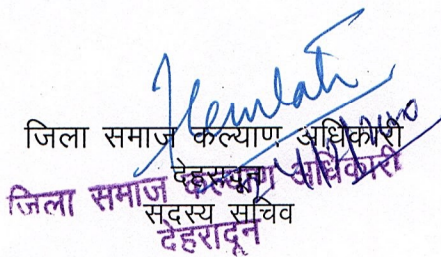 Hemlata
जिला समाज कल्याण अधिकारी
देहरादून
सदस्य सचिव
जिला समाज कल्याण अधिकारी
देहरादून